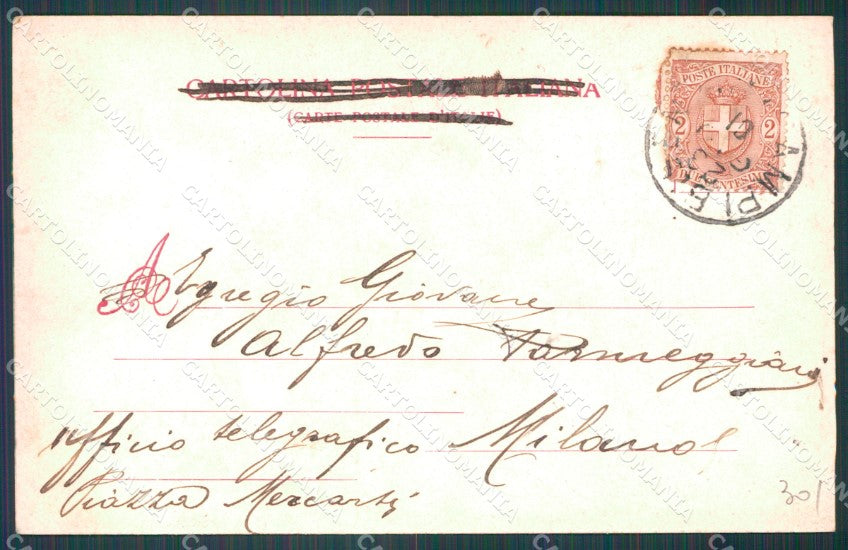 CARTOLINA POSTALE ITALIANA
(CARTE POSTALE D'ITALIE)
POSTE ITALIANE
2 2
DUE CENTESIMI
A Egregio Giovane
Alfredo Parmeggiani
Ufficio telegrafico Milano
Piazza Mercanti
301
CARTOLINOMANIA